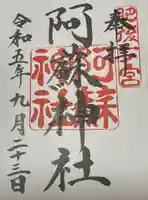 奉拝
肥後一宮
阿蘇神社
阿蘇神社
令和五年九月二十三日